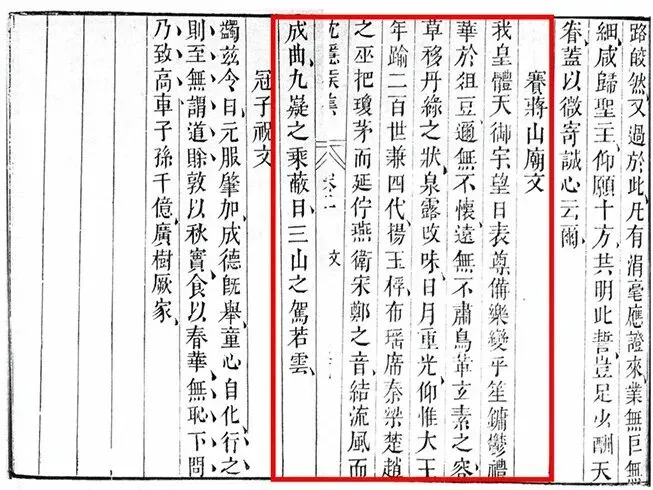 路皎然又過於此凡有涓毫應證來業無巨無
細咸歸聖主仰願十方共明此誓豈足少酬天
眷蓋以微寄誠心云爾
賽蔣山廟文
我皇體天御宇望日表尊備樂變乎笙鏞鬱禮
華於俎豆邇無不懷遠無不肅鳥革玄素之容
草移丹綠之狀泉露改味日月重光仰惟大王
年踰二百世兼四代揚玉桴布瑤席秦梁楚趙
之巫把瓊茅而延佇燕衛宋鄭之音結流風而
沈隱侯集 卷二 文
成曲九嶷之乘蔽日三山之駕若雲
冠子祝文
蠲茲令日元服肇加成德既舉童心自化行之
則至無謂道賖敦以秋實食以春華無恥下問
乃致高車子孫千億廣樹厥家